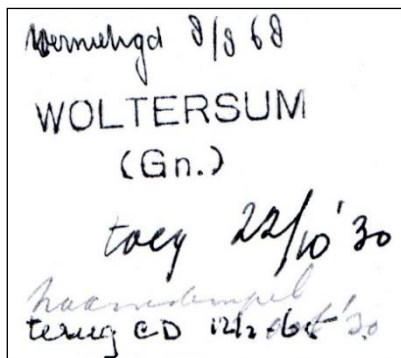 Vernietigd 8/8 68
WOLTERSUM
(Gn.)
toeg 22/10 '30
naamstempel
terug CD